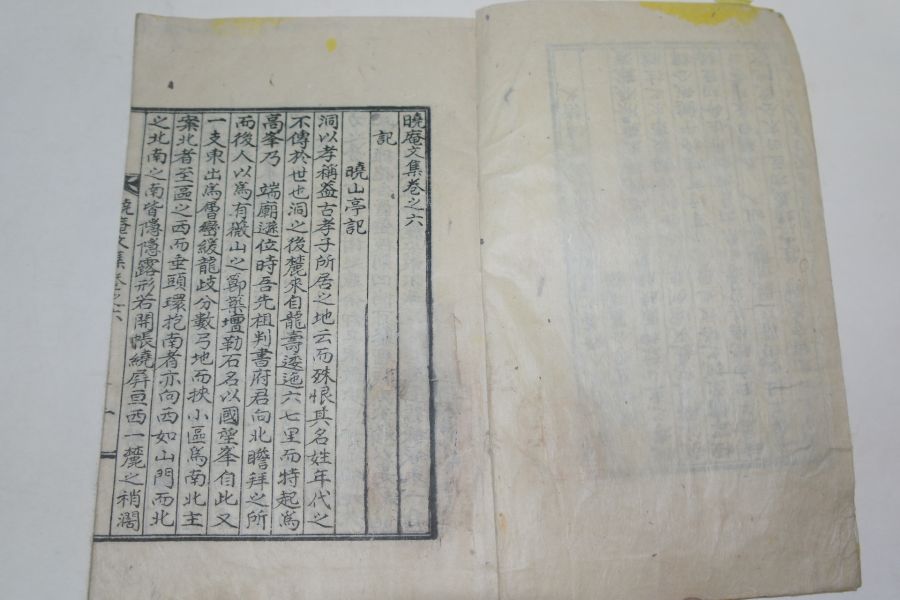 曉庵文集卷之六
記
曉山亭記
洞以孝稱盖古孝子所居之地云而殊恨其名姓年代之
不傳於世也洞之後麓來自龍壽逶迤六七里而特起爲
高峯乃 端廟遜位時吾先祖判書府君向北瞻拜之所
而後人以爲有薇山之 築壇勒石名以國望峯自此又
一支東出爲層巒緩龍歧分數弓地而挾小區爲南北主
案北者至區之西而垂頭環抱南者亦向西如山門而北
之北南之南皆隱隱露形若開帳繞屛亘西一麓之稍濶
曉庵文集卷之六